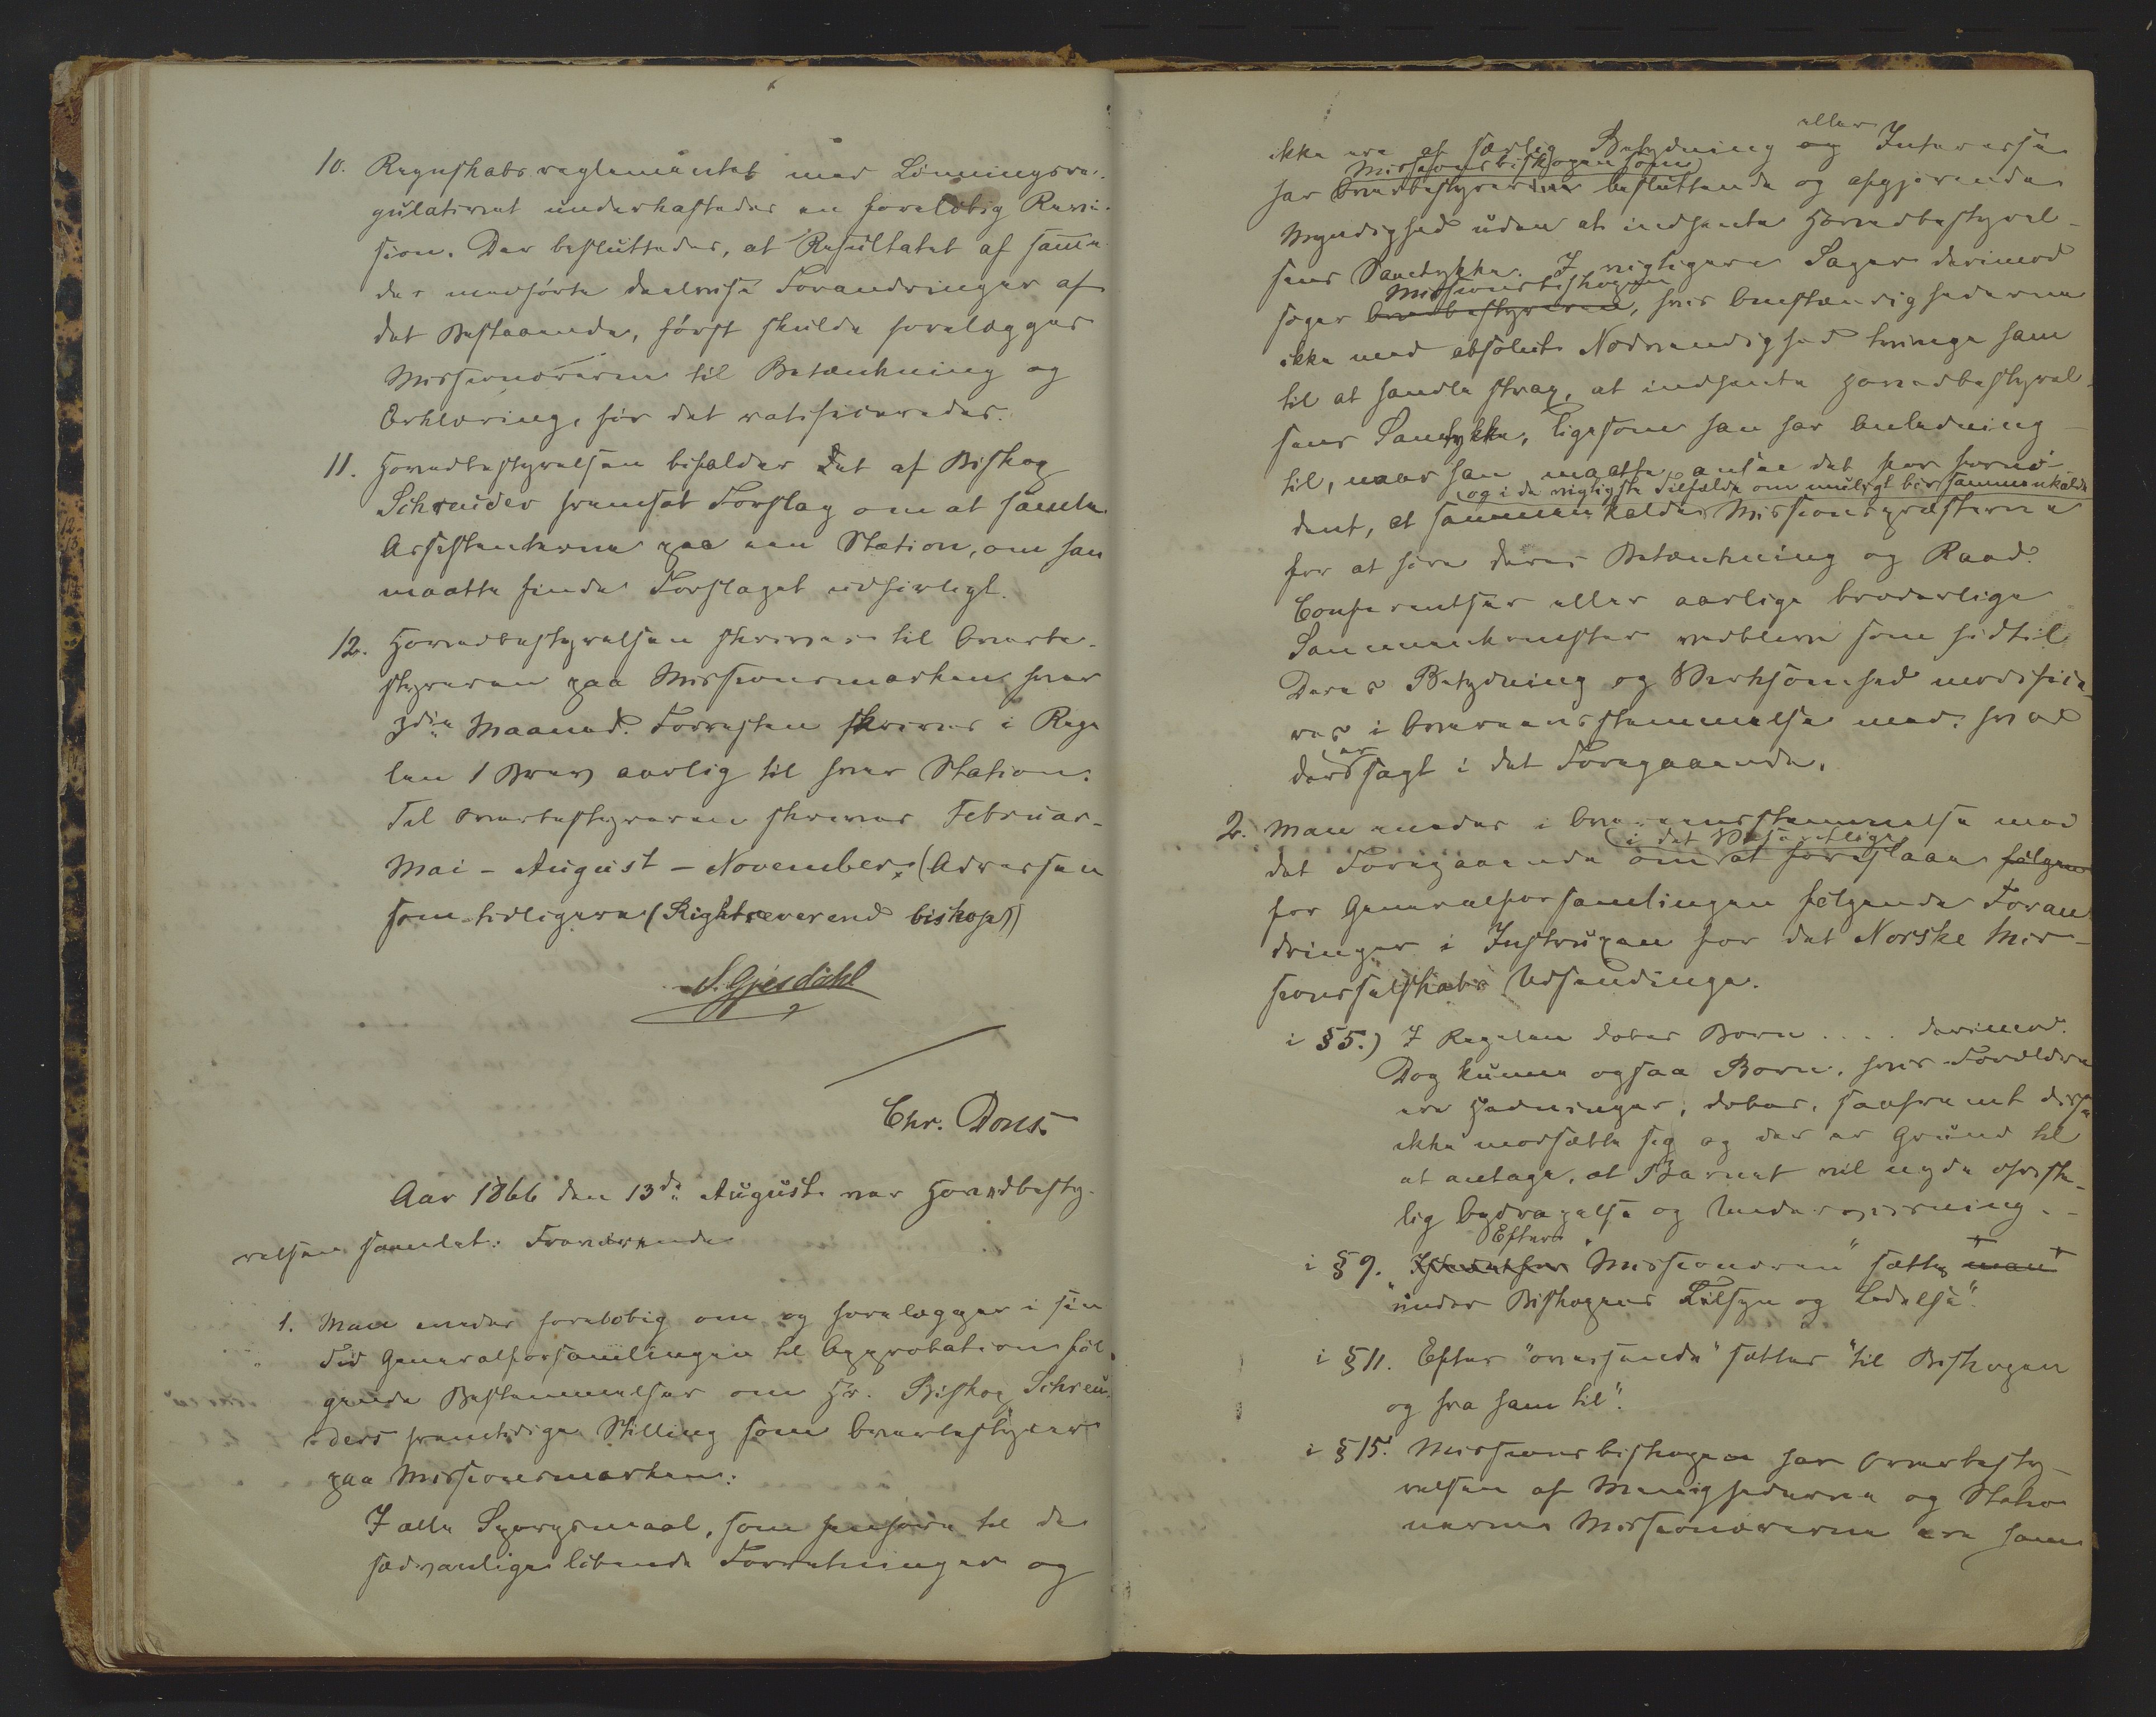 10. Regnskabsreglementet med Lönningsre-
gulativet underkastedes en forelöbig Revi-
sion. Der besluttedes, at Resultatet af samme
der medförte deelvise Forandringer af
det Bestaaende, först skulde forelægges
Missionærerne til Betænkning og
Erklæring, för det ratificeredes.
11. Hovedbestyrelsen bifalder det af Biskop
Schreuder fremsat Forslag om at samle
Assistenterne paa een Station, om han
maatte finde Forslaget udförligt.
12. Hovedbestyrelsen skriver til Overbe-
styreren paa Missionsmarken hver
3die Maaned. Forresten skrives i Rege
len 1 Brev aarlig til hver Station.
Til Overbestyreren skrives Februar-
Mai - August - November. (Adressen
som tidligere (Rightreverend bishop))
S. Gjesdahl
Chr. Dons.
Aar 1866 den 13de August var Hovedbesty-
relsen samlet. Fraværende
1. Man enedes forelöbig om og forelægger i sin
Tid Generalforsamlingen til Approbation föl
gende Bestemmelser om Hr. Biskop Schreu-
ders fremtidige Stilling som Overbestyrer
paa Missionsmarken:
I alle Spørgsmaal, som henhøre til de
sædvanlige löbende Forretninger og
eller
ikke ere af særlig Betydning og Interesse
Missionsbiskopen som
har Overbestyreren besluttende og afgjørende
Myndighed uden at indhente Hovedbestyrel-
sens Samtykke. I vigtigere Sager derimod
Missionsbiskopen
søger Overbestyreren, hvis Omstændighederne
ikke med absolut Nødvendighed tvinge ham
til at handle strax, at indhente Hovedbestyrel-
sens Samtykke, ligesom han har Anledning
til, naar han maatte ansee det for fornö-
og i de vigtigste Tilfælde om muligt bør sammenkalde
dent, at sammenkalde Missionspræsterne
for at höre deres Betænkning og Raad.
Conferentser eller aarlige broderlige
Sammenkomster vedblive som hidtil
Deres Betydning og Virksomhed modifice-
res i Overeensstemmelse med hvad
der er sagt i det Foregaaende.
2. Man enedes i Overeensstemmelse med
i det Væsentlige
det Foregaaende om at foreslaae følgen
for Generalforsamlingen følgende Foran
dringer i Instruxen for det Norske Mis-
sionsselskabs Udsendinge.
i § 5.) I Regelen døbes Børn . . . . derimod.
Dog kunne ogsaa Børn, hvis Forældre
ere Hedninger, döbes, saafremt disse
ikke modsætte sig og der er Grund til
at antage, at Barnet vil nyde christe-
lig Opdragelse og Underviisning.
Efter
i § 9. "Missionæren" sættes man
"under Biskopens Tilsyn og Ledelse".
i § 11. Efter "oversende" sættes "til Biskopen
og fra ham til".
i § 15. Missionsbiskopen har Overbesty-
relsen af Menighederne og Statio
nerne Missionærerne ere ham